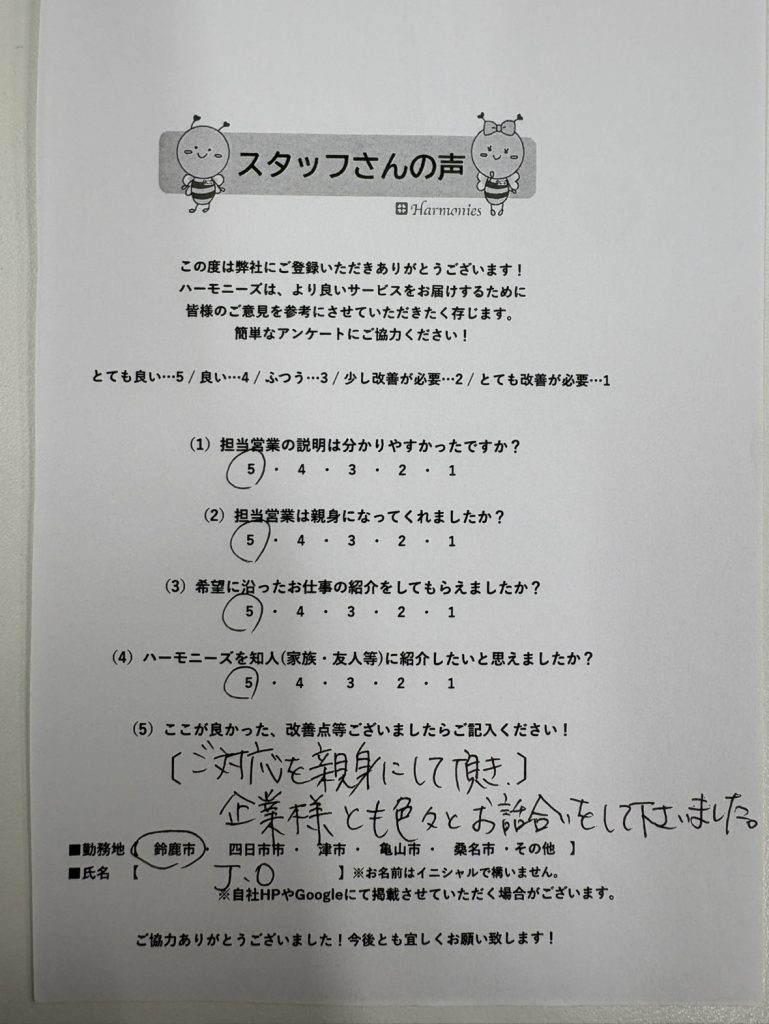 スタッフさんの声
Harmonies
この度は弊社にご登録いただきありがとうございます！
ハーモニーズは、より良いサービスをお届けするために
皆様のご意見を参考にさせていただきたく存じます。
簡単なアンケートにご協力ください！
とても良い…5 / 良い…4 / ふつう…3 / 少し改善が必要…2 / とても改善が必要…1
（1）担当営業の説明は分かりやすかったですか？
5 ・ 4 ・ 3 ・ 2 ・ 1
（2）担当営業は親身になってくれましたか？
5 ・ 4 ・ 3 ・ 2 ・ 1
（3）希望に沿ったお仕事の紹介をしてもらえましたか？
5 ・ 4 ・ 3 ・ 2 ・ 1
（4）ハーモニーズを知人(家族・友人等)に紹介したいと思えましたか？
5 ・ 4 ・ 3 ・ 2 ・ 1
（5）ここが良かった、改善点等ございましたらご記入ください！
〔ご対応を親身にして頂き、〕
企業様とも色々とお話合いをして下さいました。
■勤務地【 鈴鹿市 ・ 四日市市 ・ 津市 ・ 亀山市 ・ 桑名市 ・その他 】
■氏名 【 J.O 】※お名前はイニシャルで構いません。
※自社HPやGoogleにて掲載させていただく場合がございます。
ご協力ありがとうございました！今後とも宜しくお願い致します！